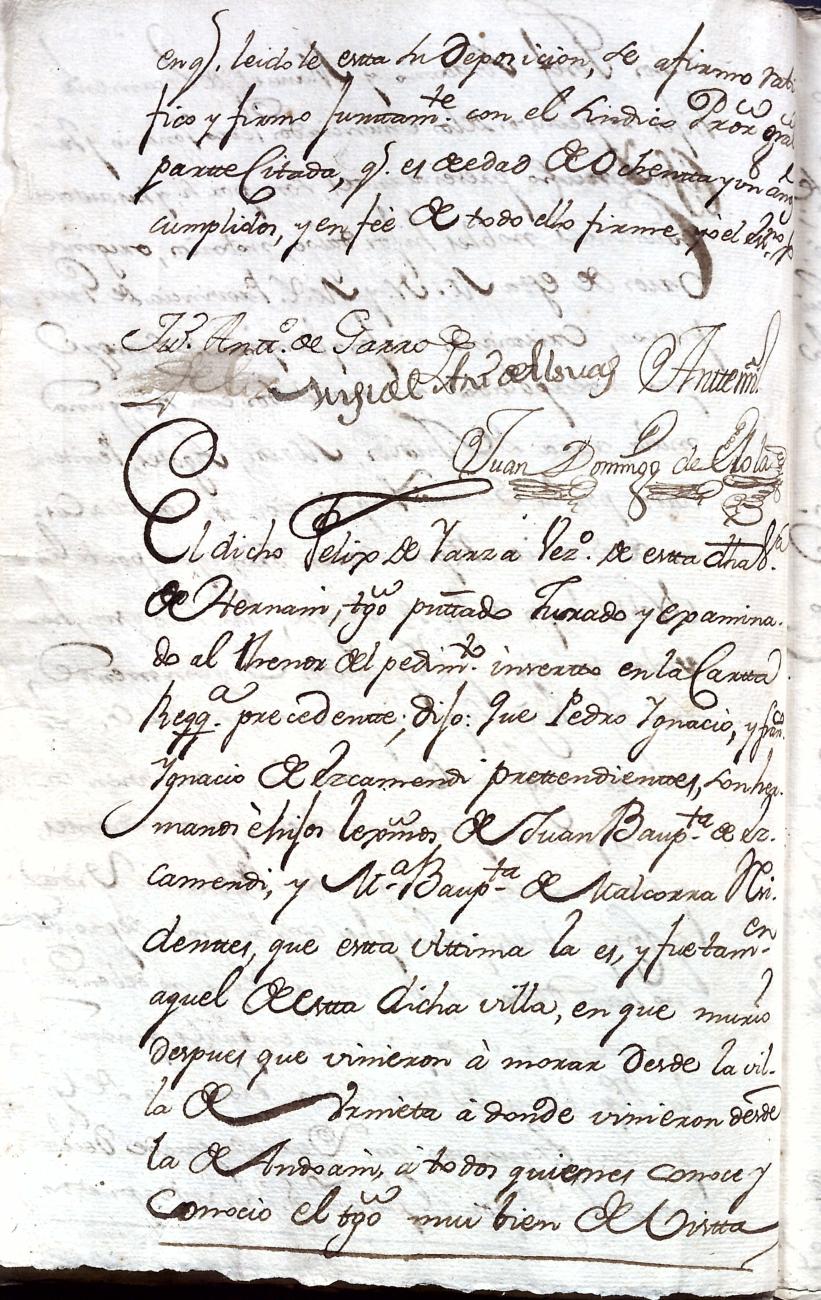 en q.e leidole estta su Deposicion, se afirmo rati
fico y firmo Junttam.te con el Sindico Pror gral
partte Cittada, q.e es de edad de Ochentta y un años
cumplidos, y en feè de todo ello firme yò el Ess.no
Ju.o Antt.o de Garro
Miguel Ant.o de
Anttemi
Juan Domingo de
El dicho Felix de Yarza Vez.o de estta dha V.a
de Hernani, tgo puttado Jurado y examina-
do al thenor del pedim.to insertto en la Cartta
Reqq.a precedentte, dijo: Que Pedro Ygnacio, y fran.co
Ygnacio de Ezcamendi prettendienttes, son her-
manos è hijos lexmos de Juan Baup.ta de Ez-
camendi, y M.a Baup.ta de Ualcorra Resi-
denttes, que estta ulttima la es, y fue tam-en
aquel de estta dicha villa, en que muriò
despues que vinieron à morar desde la vil-
la de Urnieta à donde vinieron desde
la de Andoain, à todos quienes conoce y
Conocio el tgo mui bien de Vistta